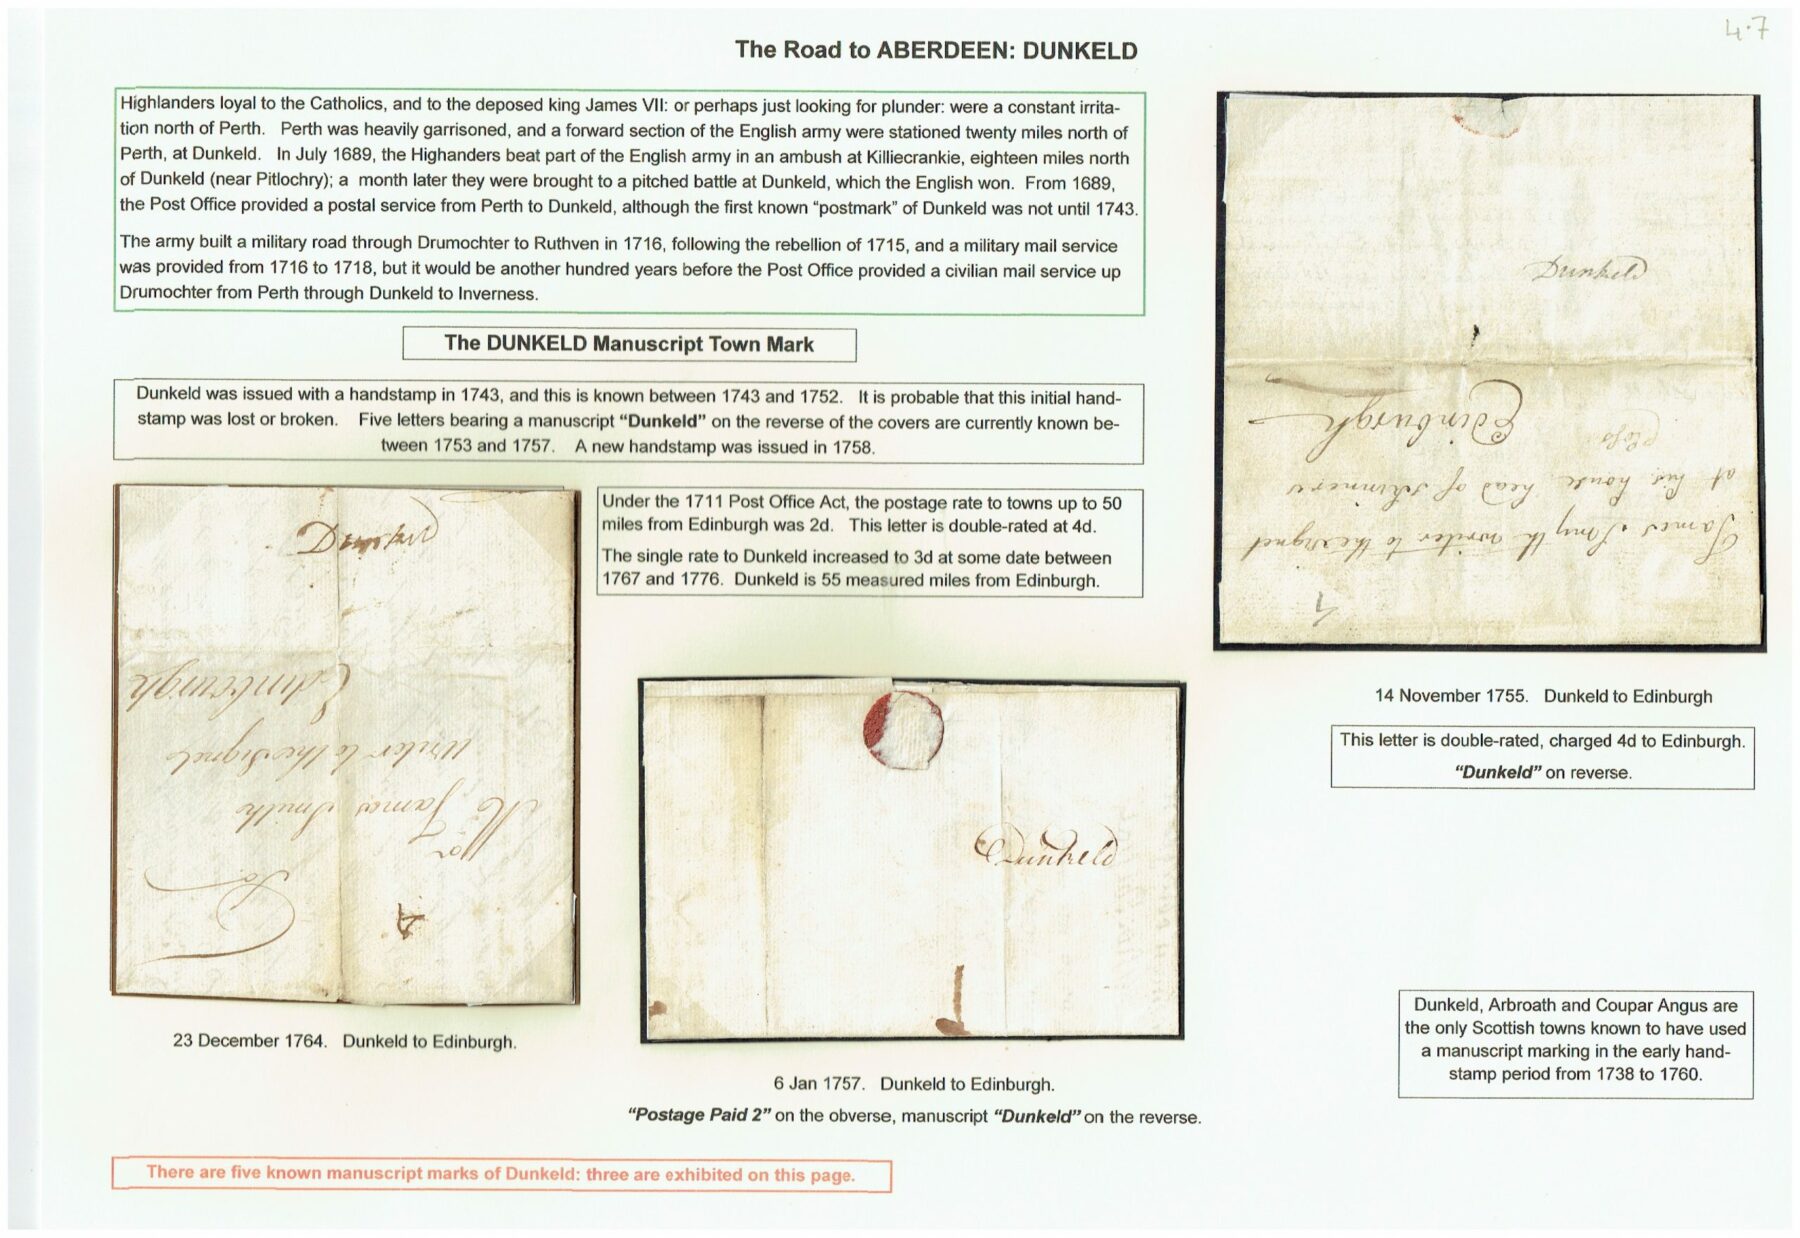 4.7
The Road to ABERDEEN: DUNKELD
Highlanders loyal to the Catholics, and to the deposed king James VII: or perhaps just looking for plunder: were a constant irrita-
tion north of Perth. Perth was heavily garrisoned, and a forward section of the English army were stationed twenty miles north of
Perth, at Dunkeld. In July 1689, the Highanders beat part of the English army in an ambush at Killiecrankie, eighteen miles north
of Dunkeld (near Pitlochry); a month later they were brought to a pitched battle at Dunkeld, which the English won. From 1689,
the Post Office provided a postal service from Perth to Dunkeld, although the first known “postmark” of Dunkeld was not until 1743.
The army built a military road through Drumochter to Ruthven in 1716, following the rebellion of 1715, and a military mail service
was provided from 1716 to 1718, but it would be another hundred years before the Post Office provided a civilian mail service up
Drumochter from Perth through Dunkeld to Inverness.
The DUNKELD Manuscript Town Mark
Dunkeld was issued with a handstamp in 1743, and this is known between 1743 and 1752. It is probable that this initial hand-
stamp was lost or broken. Five letters bearing a manuscript “Dunkeld” on the reverse of the covers are currently known be-
tween 1753 and 1757. A new handstamp was issued in 1758.
Under the 1711 Post Office Act, the postage rate to towns up to 50
miles from Edinburgh was 2d. This letter is double-rated at 4d.
The single rate to Dunkeld increased to 3d at some date between
1767 and 1776. Dunkeld is 55 measured miles from Edinburgh.
Dunkeld
To
Mr James Smith
Writer to the Signet
Edinburgh
4
23 December 1764. Dunkeld to Edinburgh.
Dunkeld
6 Jan 1757. Dunkeld to Edinburgh.
“Postage Paid 2” on the obverse, manuscript “Dunkeld” on the reverse.
Dunkeld
James Smyth writer to the signet
at his house head of Skinners
Closs
Edinburgh
4
14 November 1755. Dunkeld to Edinburgh
This letter is double-rated, charged 4d to Edinburgh.
“Dunkeld” on reverse.
Dunkeld, Arbroath and Coupar Angus are
the only Scottish towns known to have used
a manuscript marking in the early hand-
stamp period from 1738 to 1760.
There are five known manuscript marks of Dunkeld: three are exhibited on this page.